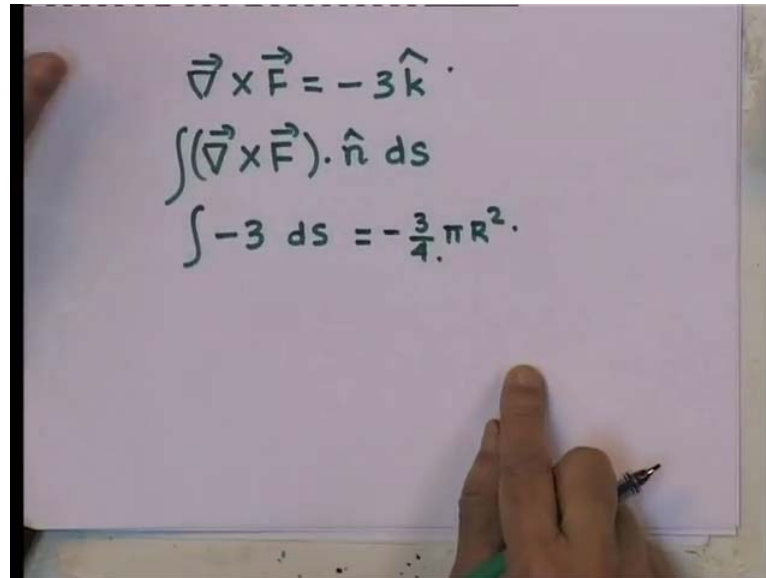 ∇⃗ × F⃗ = -3k̂.
∫(∇⃗ × F⃗). n̂ ds
∫ -3 ds = -3/4. πR².